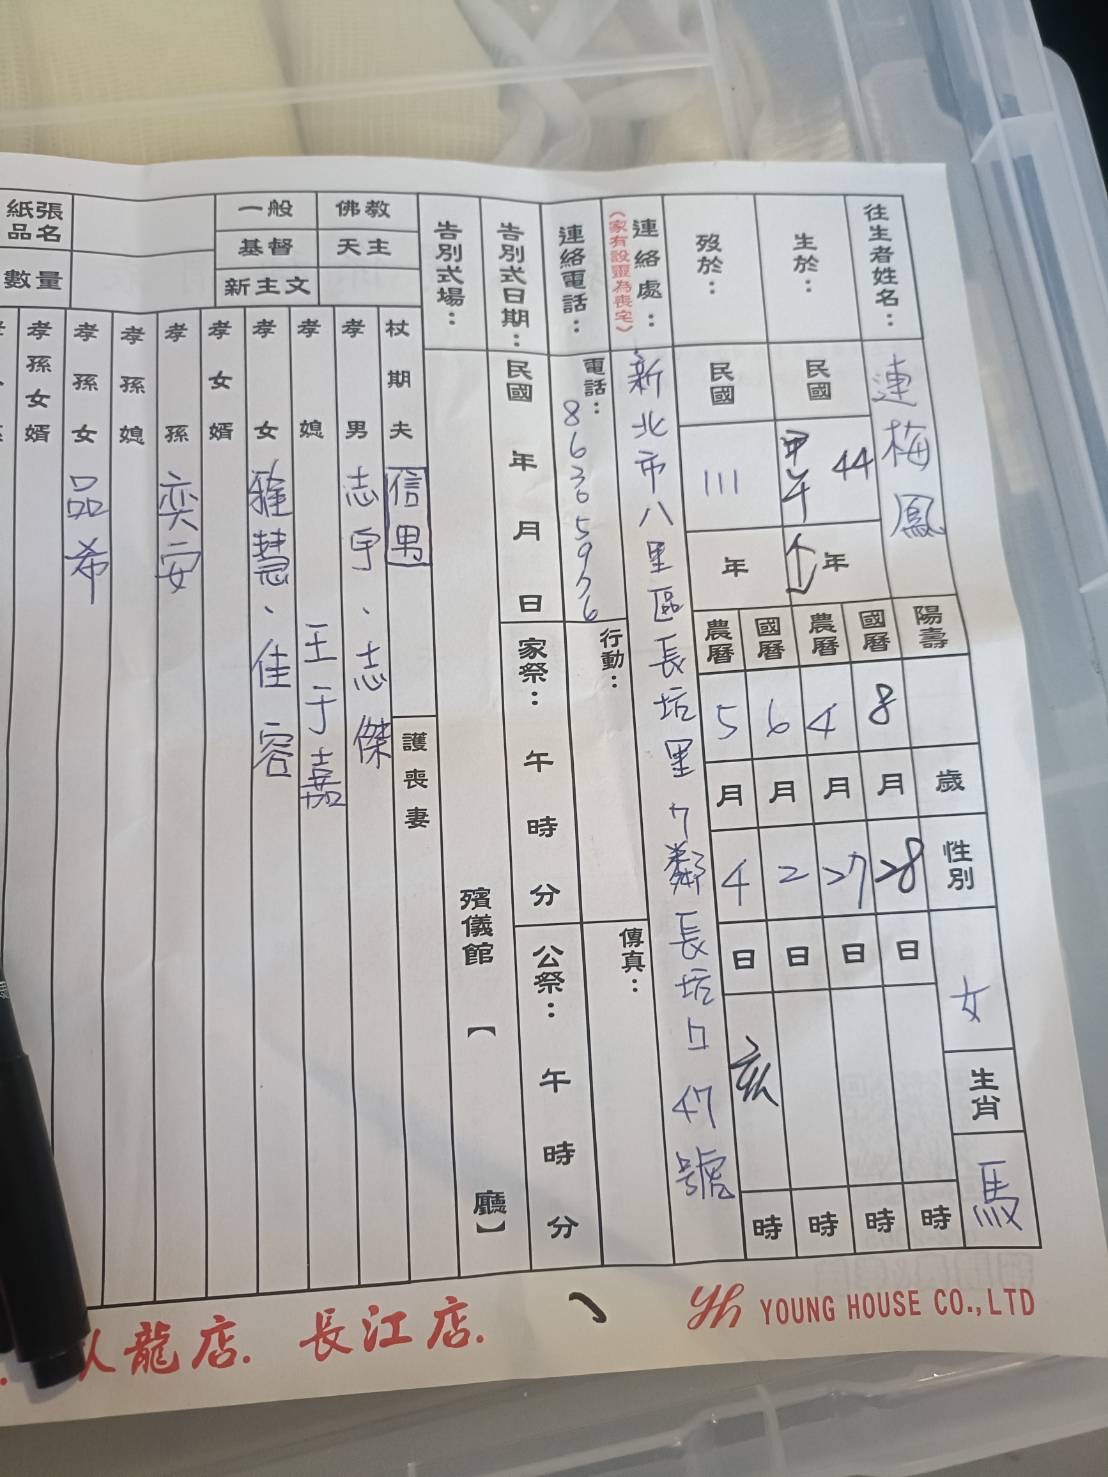 往生者姓名：連梅鳳
陽壽 歲 性別 女 生肖 馬
生於：民國 44 年
國曆 8 月 28 日 時
農曆 4 月 27 日 時
歿於：民國 111 年
國曆 6 月 2 日 時
農曆 5 月 4 日 亥 時
連絡處：新北市八里區長坑里7鄰長坑口47號
（家有設靈為喪宅）
連絡電話：電話：86305976 行動： 傳真：
告別式日期：民國 年 月 日 家祭： 午 時 分 公祭： 午 時 分
告別式場： 殯儀館【 廳】
佛教 天主
一般 基督 新主文
杖期夫 信男 護喪妻
孝男 志宇、志傑
孝媳 王于嘉
孝女 雅慧、佳容
孝女婿
孝孫 奕安
孝孫媳
孝孫女 品希
孝孫女婿
紙張品名
數量
yh YOUNG HOUSE CO.,LTD
龍店. 長江店.